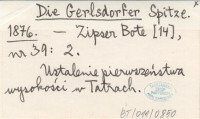 Die Gerlsdorfer Spitze.
1876. — Zipser Bote [14],
nr 39: 2.
Ustalenie pierwszeństwa
wysokości w Tatrach.
BT/041/0850